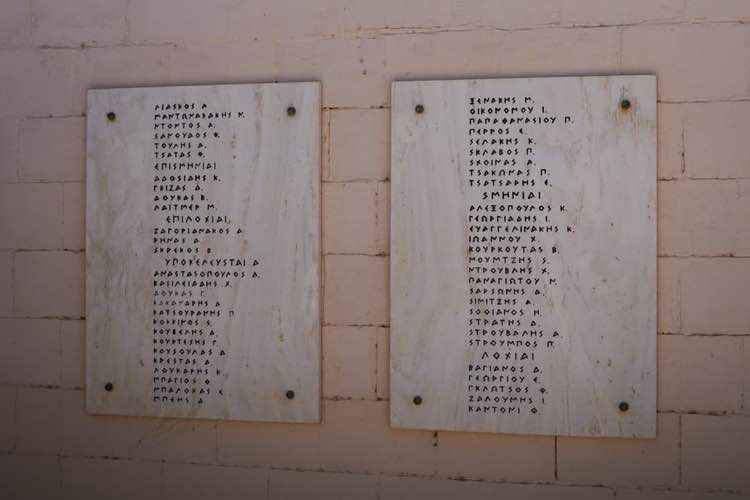 ΛΙΑΣΚΟΣ Α
ΜΑΝΤΩΝΑΝΑΚΗΣ Ν.
ΝΤΟΝΤΟΣ Α.
ΣΑΜΟΥΔΟΣ Θ.
ΤΟΥΛΗΣ Δ.
ΤΣΑΤΑΣ Φ.
ΕΠΙΣΜΗΝΙΑΙ
ΑΔΟΣΙΔΗΣ Κ.
ΓΚΙΖΑΣ Δ.
ΔΟΥΚΑΣ Β.
ΛΑΪΤΜΕΡ Μ.
ΕΠΙΛΟΧΙΑΙ
ΖΑΓΟΡΙΑΝΑΚΟΣ Δ
ΡΗΝΑΣ Δ.
ΣΚΡΕΚΟΣ Θ.
ΥΠΟΚΕΛΕΥΣΤΑΙ Α
ΑΝΑΣΤΑΣΟΠΟΥΛΟΣ Δ.
ΒΑΣΙΛΕΙΑΔΗΣ Χ.
ΔΟΥΚΑΣ Γ.
Δ
ΚΑΤΣΟΥΡΑΝΗΣ Π
ΚΟΚΚΙΝΟΣ Σ.
ΚΟΥΒΕΛΗΣ Δ.
ΚΟΥΡΤΕΣΗΣ Γ.
ΚΟΥΣΟΥΛΑΣ Δ.
ΚΡΕΣΤΑΣ Δ.
ΛΟΥΚΑΡΗΣ Κ.
ΜΠΑΓΙΟΣ Θ
ΜΠΑΛΟΚΑΣ Ε.
ΜΠΕΗΣ Δ
ΞΕΝΑΚΗΣ Μ.
ΟΙΚΟΝΟΜΟΥ Ι.
ΠΑΠΑΘΑΝΑΣΙΟΥ Π.
ΠΕΡΡΟΣ Ε.
ΣΕΛΑΚΗΣ Κ.
ΣΚΛΑΒΟΣ Π.
ΣΧΟΙΝΑΣ Α.
ΤΣΑΚΩΝΑΣ Π.
ΤΣΑΤΣΑΡΗΣ Ε.
ΣΜΗΝΙΑΙ
ΑΛΕΞΟΠΟΥΛΟΣ Κ.
ΓΕΩΡΓΙΑΔΗΣ Ι.
ΕΥΑΓΓΕΛΙΝΑΚΗΣ Κ.
ΙΩΑΝΝΟΥ Χ.
ΚΟΥΡΚΟΥΤΑΣ Β.
ΜΟΥΜΤΖΗΣ Σ.
ΝΤΡΟΥΒΑΗΣ Χ.
ΠΑΝΑΓΙΩΤΟΥ Μ.
ΣΑΡΣΩΝΗΣ Δ.
ΣΙΜΙΤΖΗΣ Α.
ΣΟΦΙΑΝΟΣ Ν.
ΣΤΡΑΤΗΣ Δ.
ΣΤΡΟΥΒΑΛΗΣ Δ.
ΣΤΡΟΥΜΠΟΣ Π.
ΛΟΧΙΑΙ
ΒΑΓΙΑΝΟΣ Δ.
ΓΕΩΡΓΙΟΥ Ε.
ΓΚΛΩΤΣΟΣ Φ.
ΖΑΛΟΥΜΗΣ Ι.
ΚΑΝΤΟΝΙ Φ